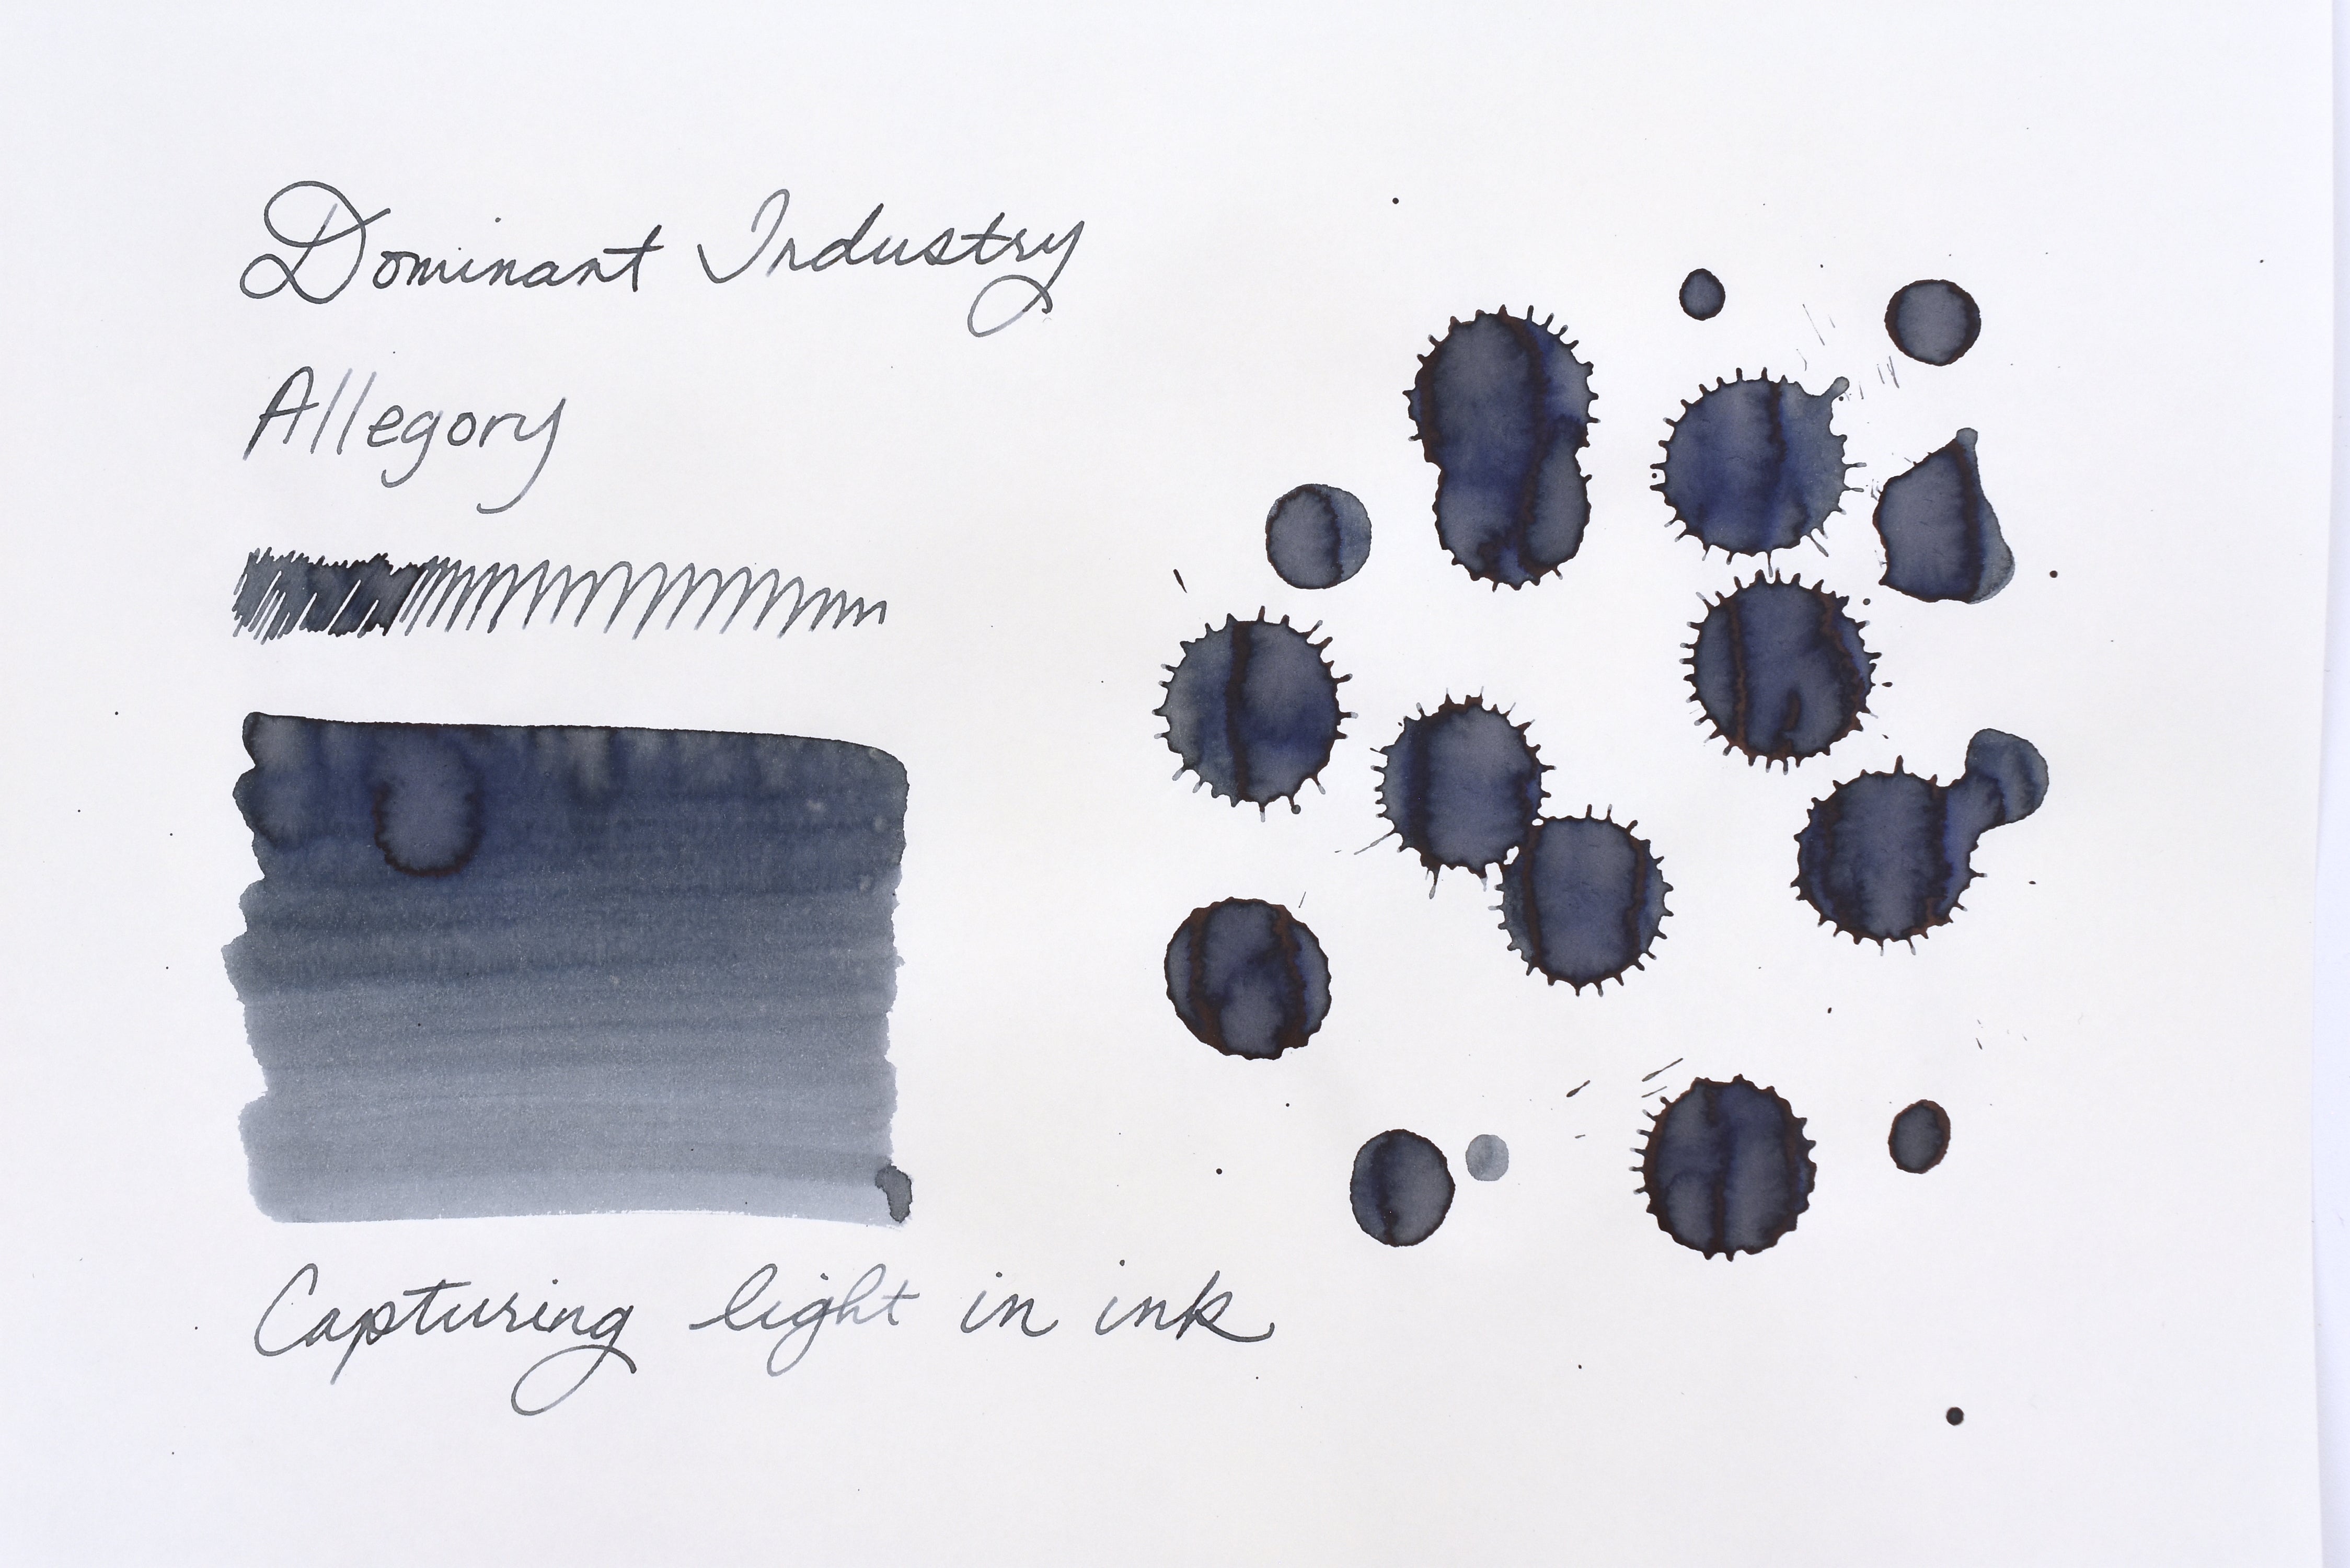 Dominant Industry
Allegory
Capturing light in ink